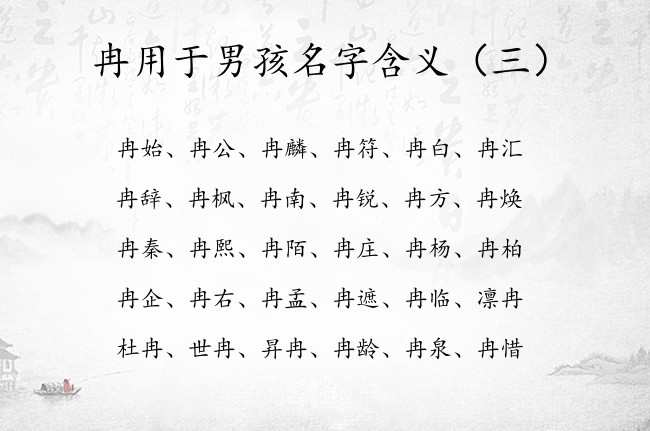 冉用于男孩名字含义（三）
冉始、冉公、冉麟、冉符、冉白、冉汇
冉辞、冉枫、冉南、冉锐、冉方、冉焕
冉秦、冉熙、冉陌、冉庄、冉杨、冉柏
冉企、冉右、冉孟、冉遮、冉临、凛冉
杜冉、世冉、昇冉、冉龄、冉泉、冉惜